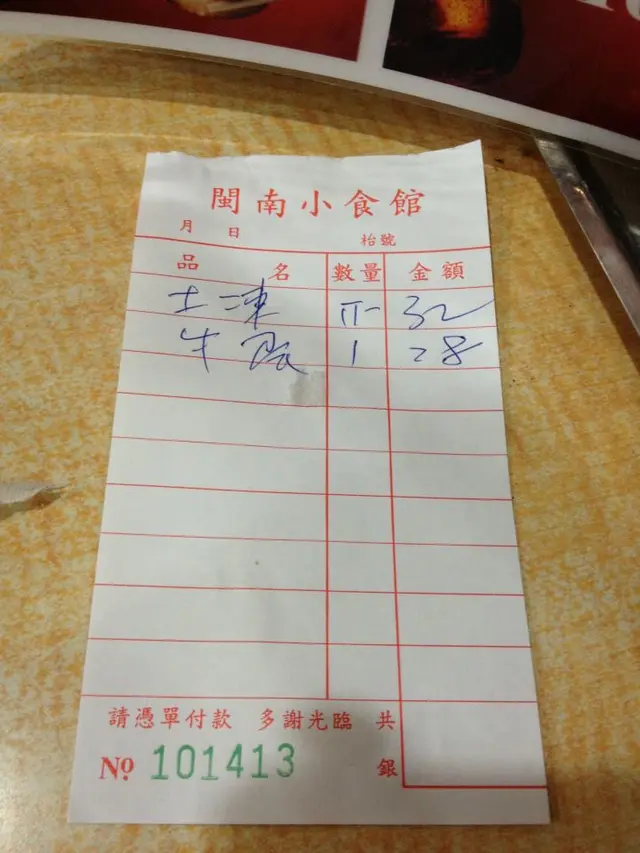 閩南小食館
月 日 枱號
品 名 數量 金額
土凍 32
牛 1 28
請憑單付款 多謝光臨 共
Nº 101413 銀